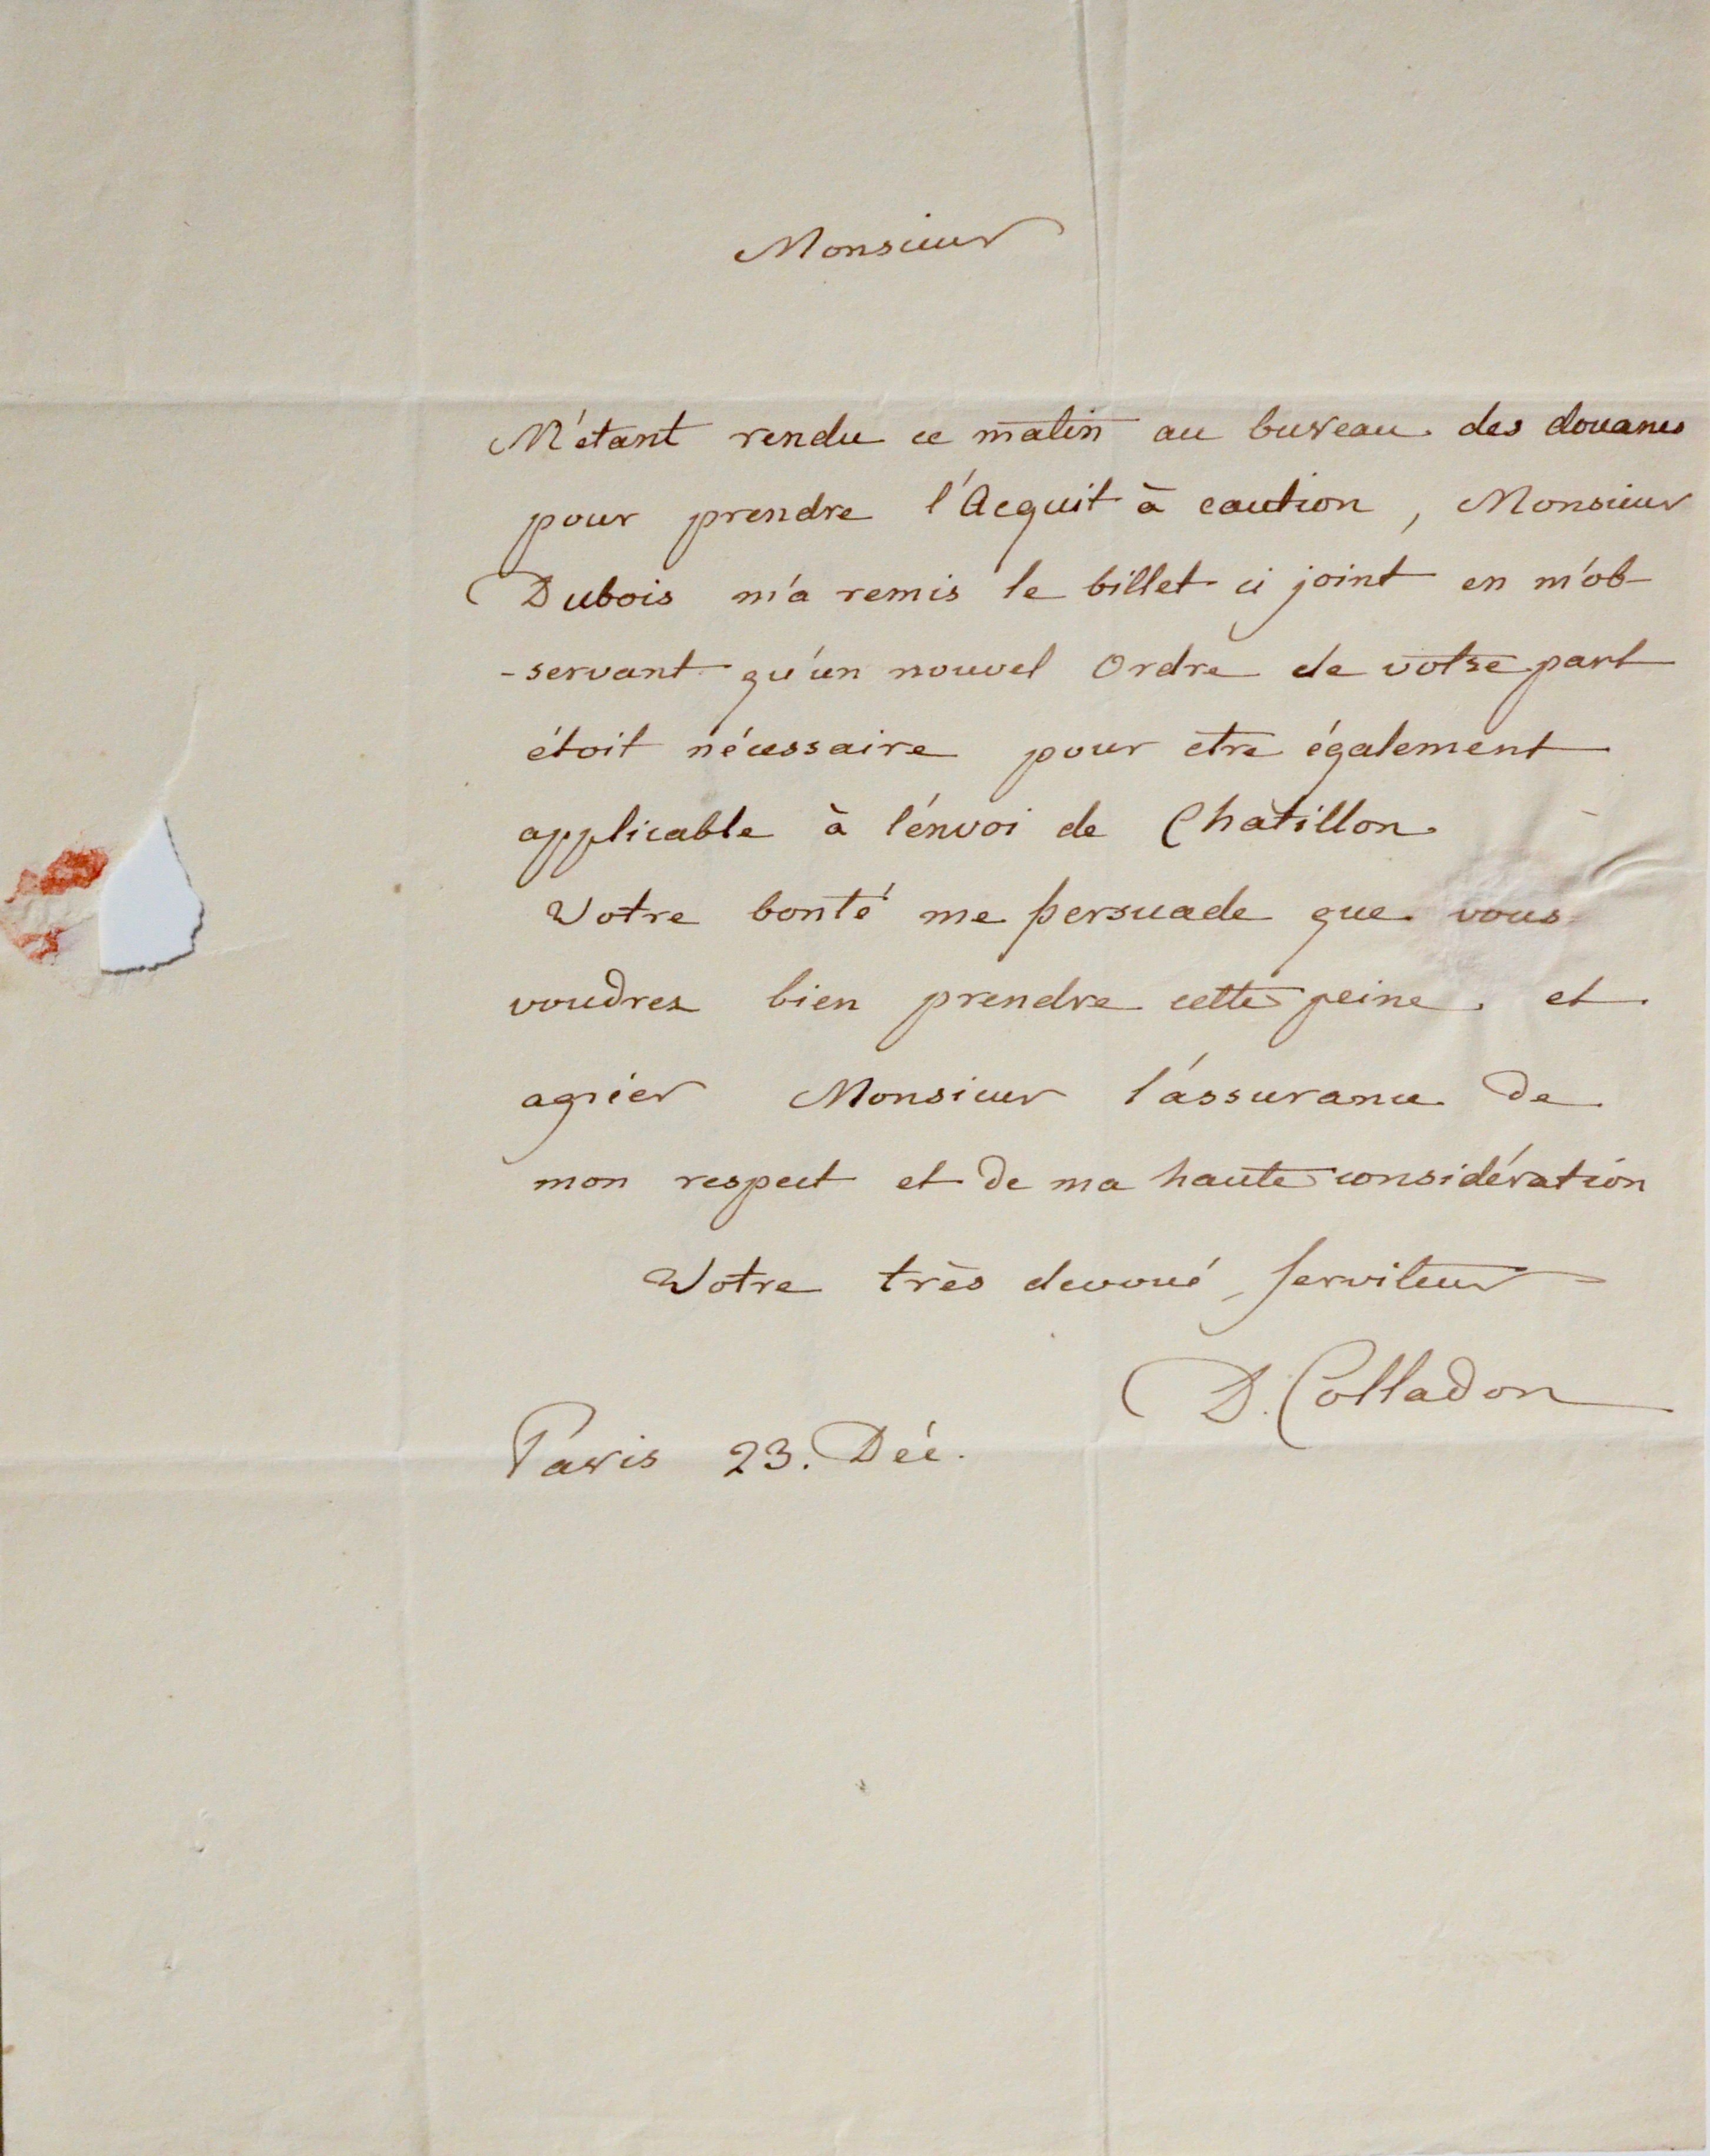 Monsieur
M'étant rendu ce matin au bureau des douanes
pour prendre l'Acquit à caution, Monsieur
Dubois m'a remis le billet ci joint en m'ob-
-servant qu'un nouvel Ordre de votre part
étoit nécessaire pour etre également
applicable à l'énvoi de Chatillon
Votre bonté me persuade que vous
voudrez bien prendre cette peine et
agréer Monsieur l'assurance de
mon respect et de ma haute considération
Votre très devoué serviteur
D. Colladon
Paris 23. Déc.